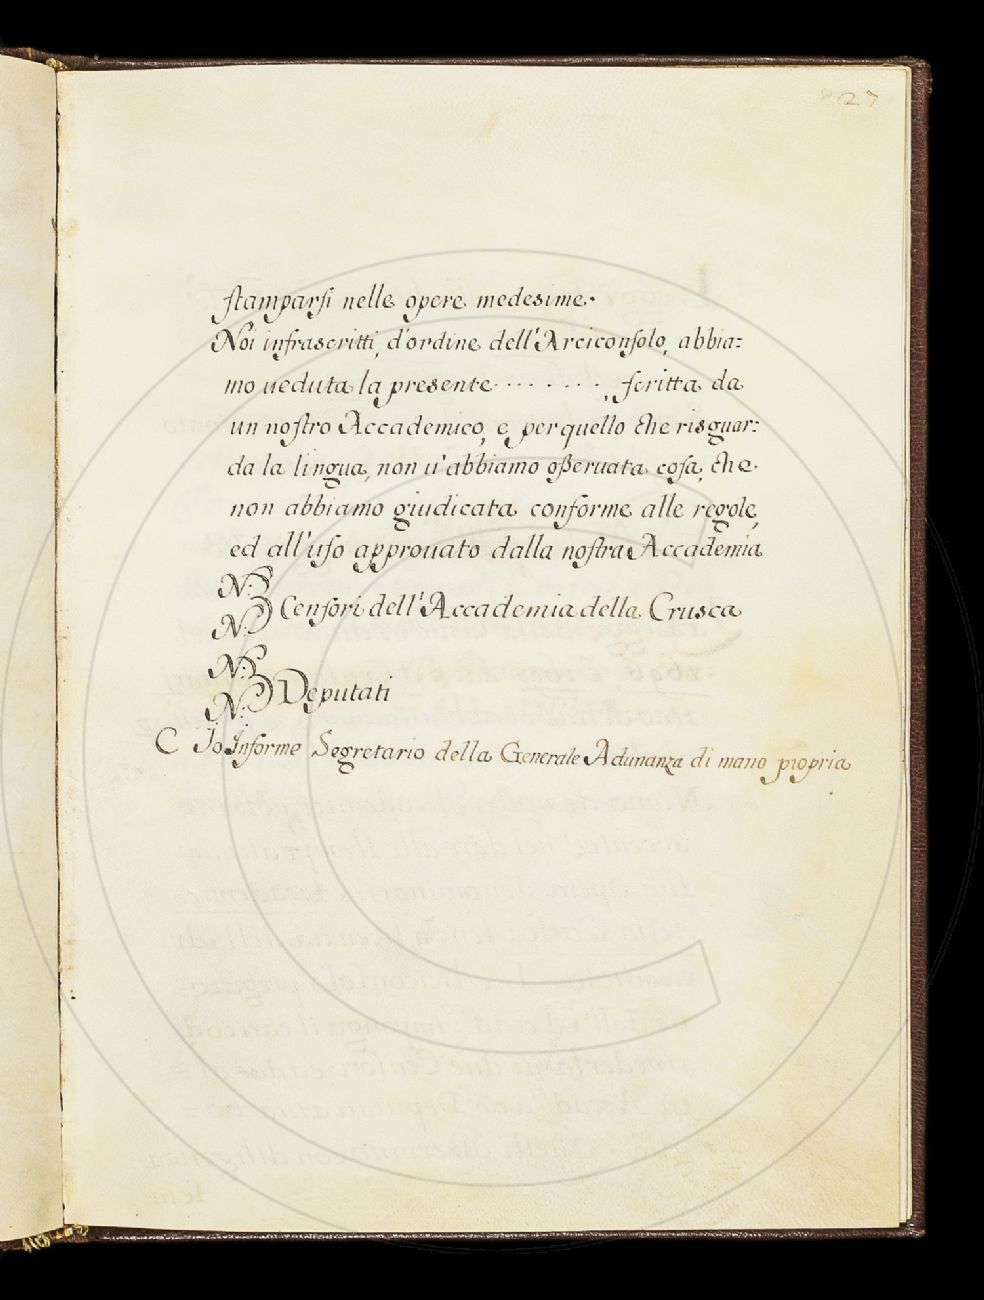 27
stamparsi nelle opere medesime.
Noi infrascritti, d'ordine dell'Arciconsolo, abbia:
mo ueduta la presente . . . . . . . . , scritta da
un nostro Accademico, e per quello che risguar:
da la lingua, non u'abbiamo osseruata cosa, che
non abbiamo giudicata conforme alle regole,
ed all'uso approuato dalla nostra Accademia
N:B
N:B Censori dell'Accademia della Crusca
N:B
N:B Deputati
Io Informe Segretario della Generale Adunanza di mano propria